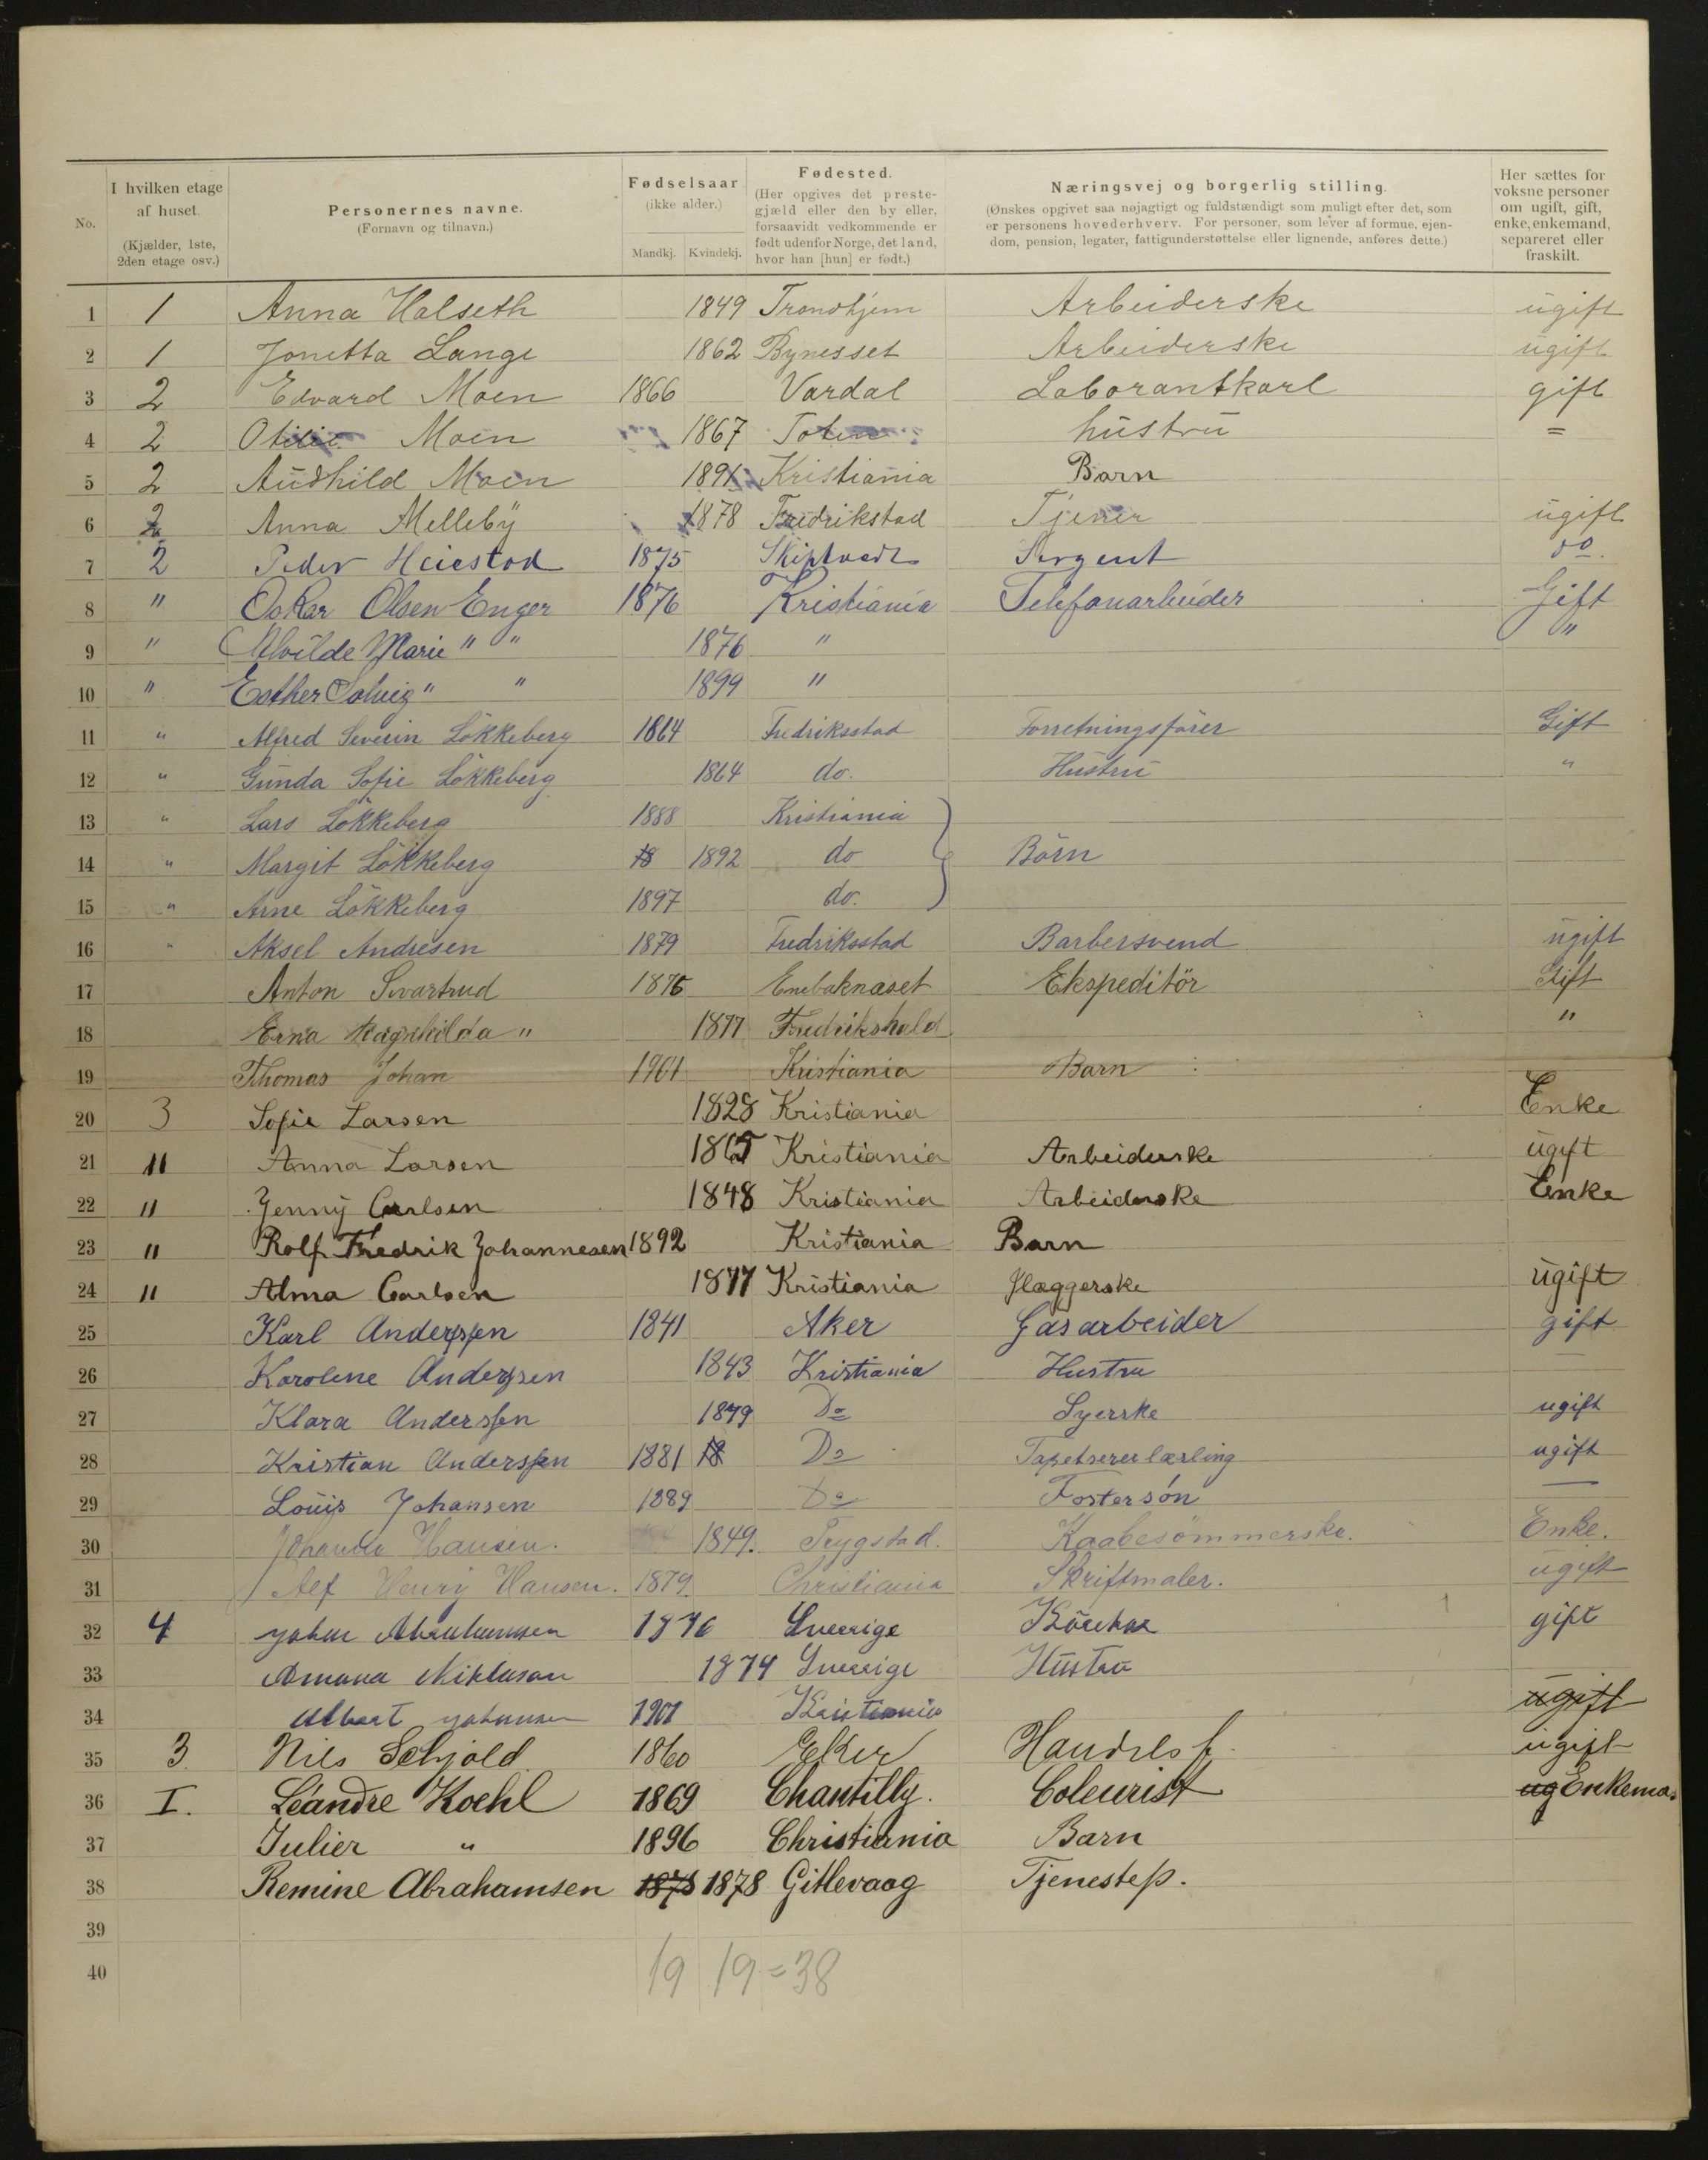 No. | I hvilken etage af huset. (Kjælder, 1ste, 2den etage osv.) | Personernes navne. (Fornavn og tilnavn.) | Fødselsaar (ikke alder.) Mandkj. Kvindekj. | Fødested. (Her opgives det prestegjæld eller den by eller, forsaavidt vedkommende er født udenfor Norge, det land, hvor han [hun] er født.) | Næringsvej og borgerlig stilling. (Ønskes opgivet saa nøjagtigt og fuldstændigt som muligt efter det, som er personens hovederhverv. For personer, som lever af formue, ejendom, pension, legater, fattigunderstøttelse eller lignende, anføres dette.) | Her sættes for voksne personer om ugift, gift, enke, enkemand, separeret eller fraskilt.
1 1 Anna Halseth 1849 Trondhjem Arbeiderske ugift
2 1 Jonetta Lange 1862 Bynesset Arbeiderske ugift
3 2 Edvard Moen 1866 Vardal Laborantkarl gift
4 2 Otilie Moen 1867 Toten hustru =
5 2 Audhild Moen 1891 Kristiania Barn
6 2 Anna Melleby 1878 Fredrikstad Tjener ugift
7 2 Peder Heiestad 1875 Skiptvedt Sergent do.
8 " Oskar Olsen Enger 1876 Kristiania Telefonarbeider Gift
9 " Alvilde Marie " " 1876 " "
10 " Esther Solveig " " 1899 "
11 " Alfred Severin Lökkeberg 1864 Fredriksstad Forretningsfører Gift
12 " Gunda Sofie Lökkeberg 1864 do. Hustru "
13 " Lars Lökkeberg 1888 Kristiania
14 " Margit Lökkeberg 18 1892 do Börn
15 " Arne Lökkeberg 1897 do.
16 " Aksel Andresen 1879 Fredriksstad Barbersvend ugift
17 Anton Svartrud 1876 Enebaknæset Ekspeditör Gift
18 Erna Ragnhilda " 1877 Fredrikshald "
19 Thomas Johan 1901 Kristiania Barn
20 3 Sofie Larsen 1828 Kristiania Enke
21 " Anna Larsen 1865 Kristiania Arbeiderske ugift
22 " Jenny Carlsen 1848 Kristiania Arbeiderske Enke
23 " Rolf Fredrik Johannesen 1892 Kristiania Barn
24 " Alma Carlsen 1877 Kristiania Plæggerske ugift
25 Karl Anderssen 1841 Aker Gasarbeider gift
26 Karolene Anderssen 1843 Kristiania Hustru —
27 Klara Anderssen 1879 Do Syerske ugift
28 Kristian Anderssen 1881 18 Do Tapetsererlærling ugift
29 Louis Johansen 1889 Do Fostersön —
30 Johanne Hansen. 1849. Trygstad. Kaabesömmerske. Enke.
31 Alf Henry Hansen. 1879. Christiania Skriftmaler. ugift
32 4 Johan 1876 Sverige gift
33 Amana Niklasson 1874 Sverige Hustru
34 Albert Johansen 1901 Kristiania ugift
35 3 Nils Schjold 1860 Eker Handelsf. ugift
36 I. Léandre Koehl 1869 Chantilly. Coleurist ug Enkema.
37 Julier " 1896 Christiania Barn
38 Remine Abrahamsen 1878 1878 Gitlevaag Tjenestep.
39
40
19 19 = 38